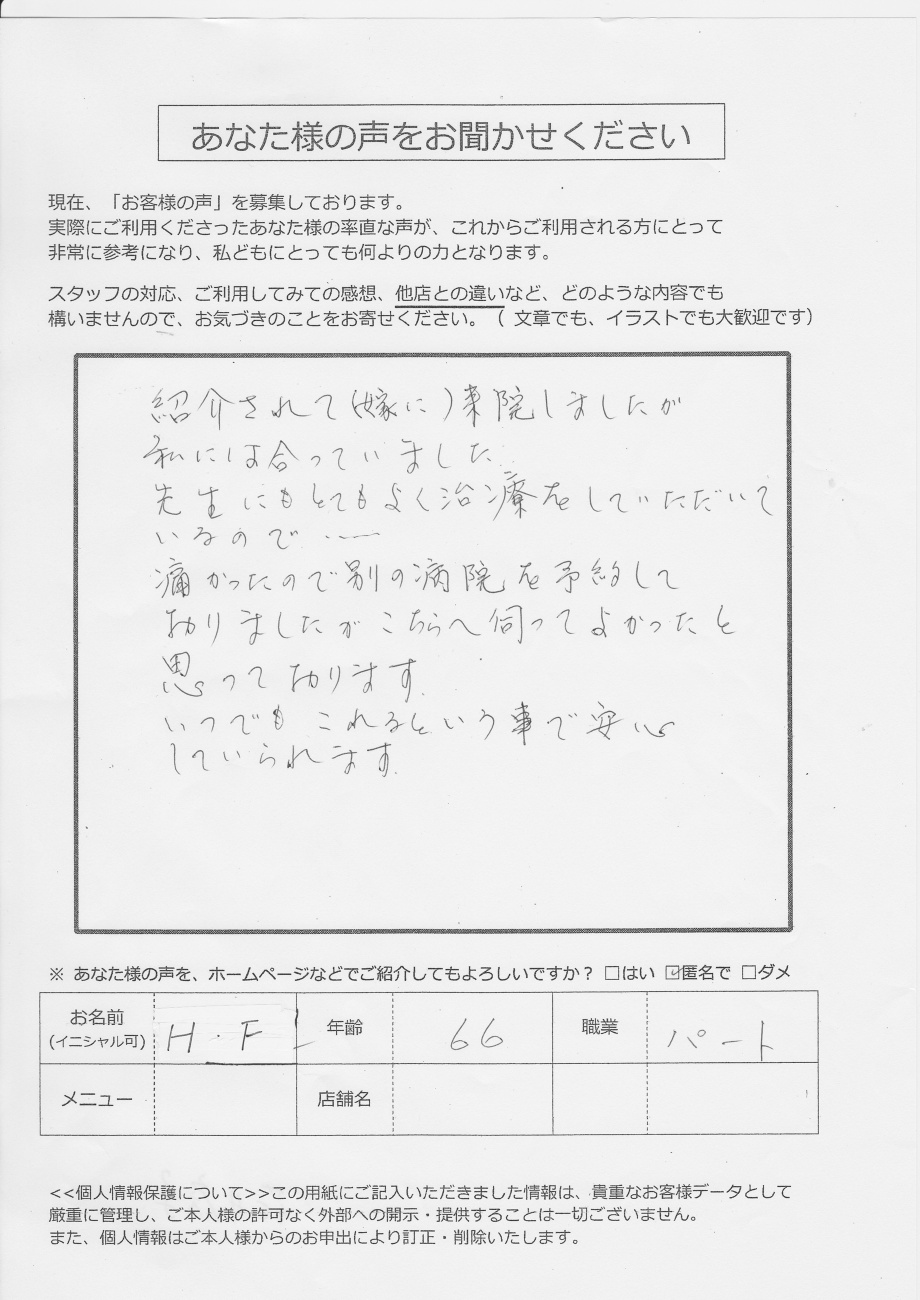 あなた様の声をお聞かせください
現在、「お客様の声」を募集しております。
実際にご利用くださったあなた様の率直な声が、これからご利用される方にとって
非常に参考になり、私どもにとっても何よりの力となります。
スタッフの対応、ご利用してみての感想、他店との違いなど、どのような内容でも
構いませんので、お気づきのことをお寄せください。（ 文章でも、イラストでも大歓迎です）
紹介されて(嫁に)来院しましたが
私には合っていました
先生にもとてもよく治療をしていただいて
いるので・・―
痛かったので別の病院を予約して
おりましたがこちらへ伺ってよかったと
思っております。
いつでもこれるという事で安心
していられます。
※ あなた様の声を、ホームページなどでご紹介してもよろしいですか？ □はい ☑匿名で □ダメ
お名前 (イニシャル可) H.F 年齢 66 職業 パート
メニュー 店舗名
<<個人情報保護について>>この用紙にご記入いただきました情報は、貴重なお客様データとして
厳重に管理し、ご本人様の許可なく外部への開示・提供することは一切ございません。
また、個人情報はご本人様からのお申出により訂正・削除いたします。